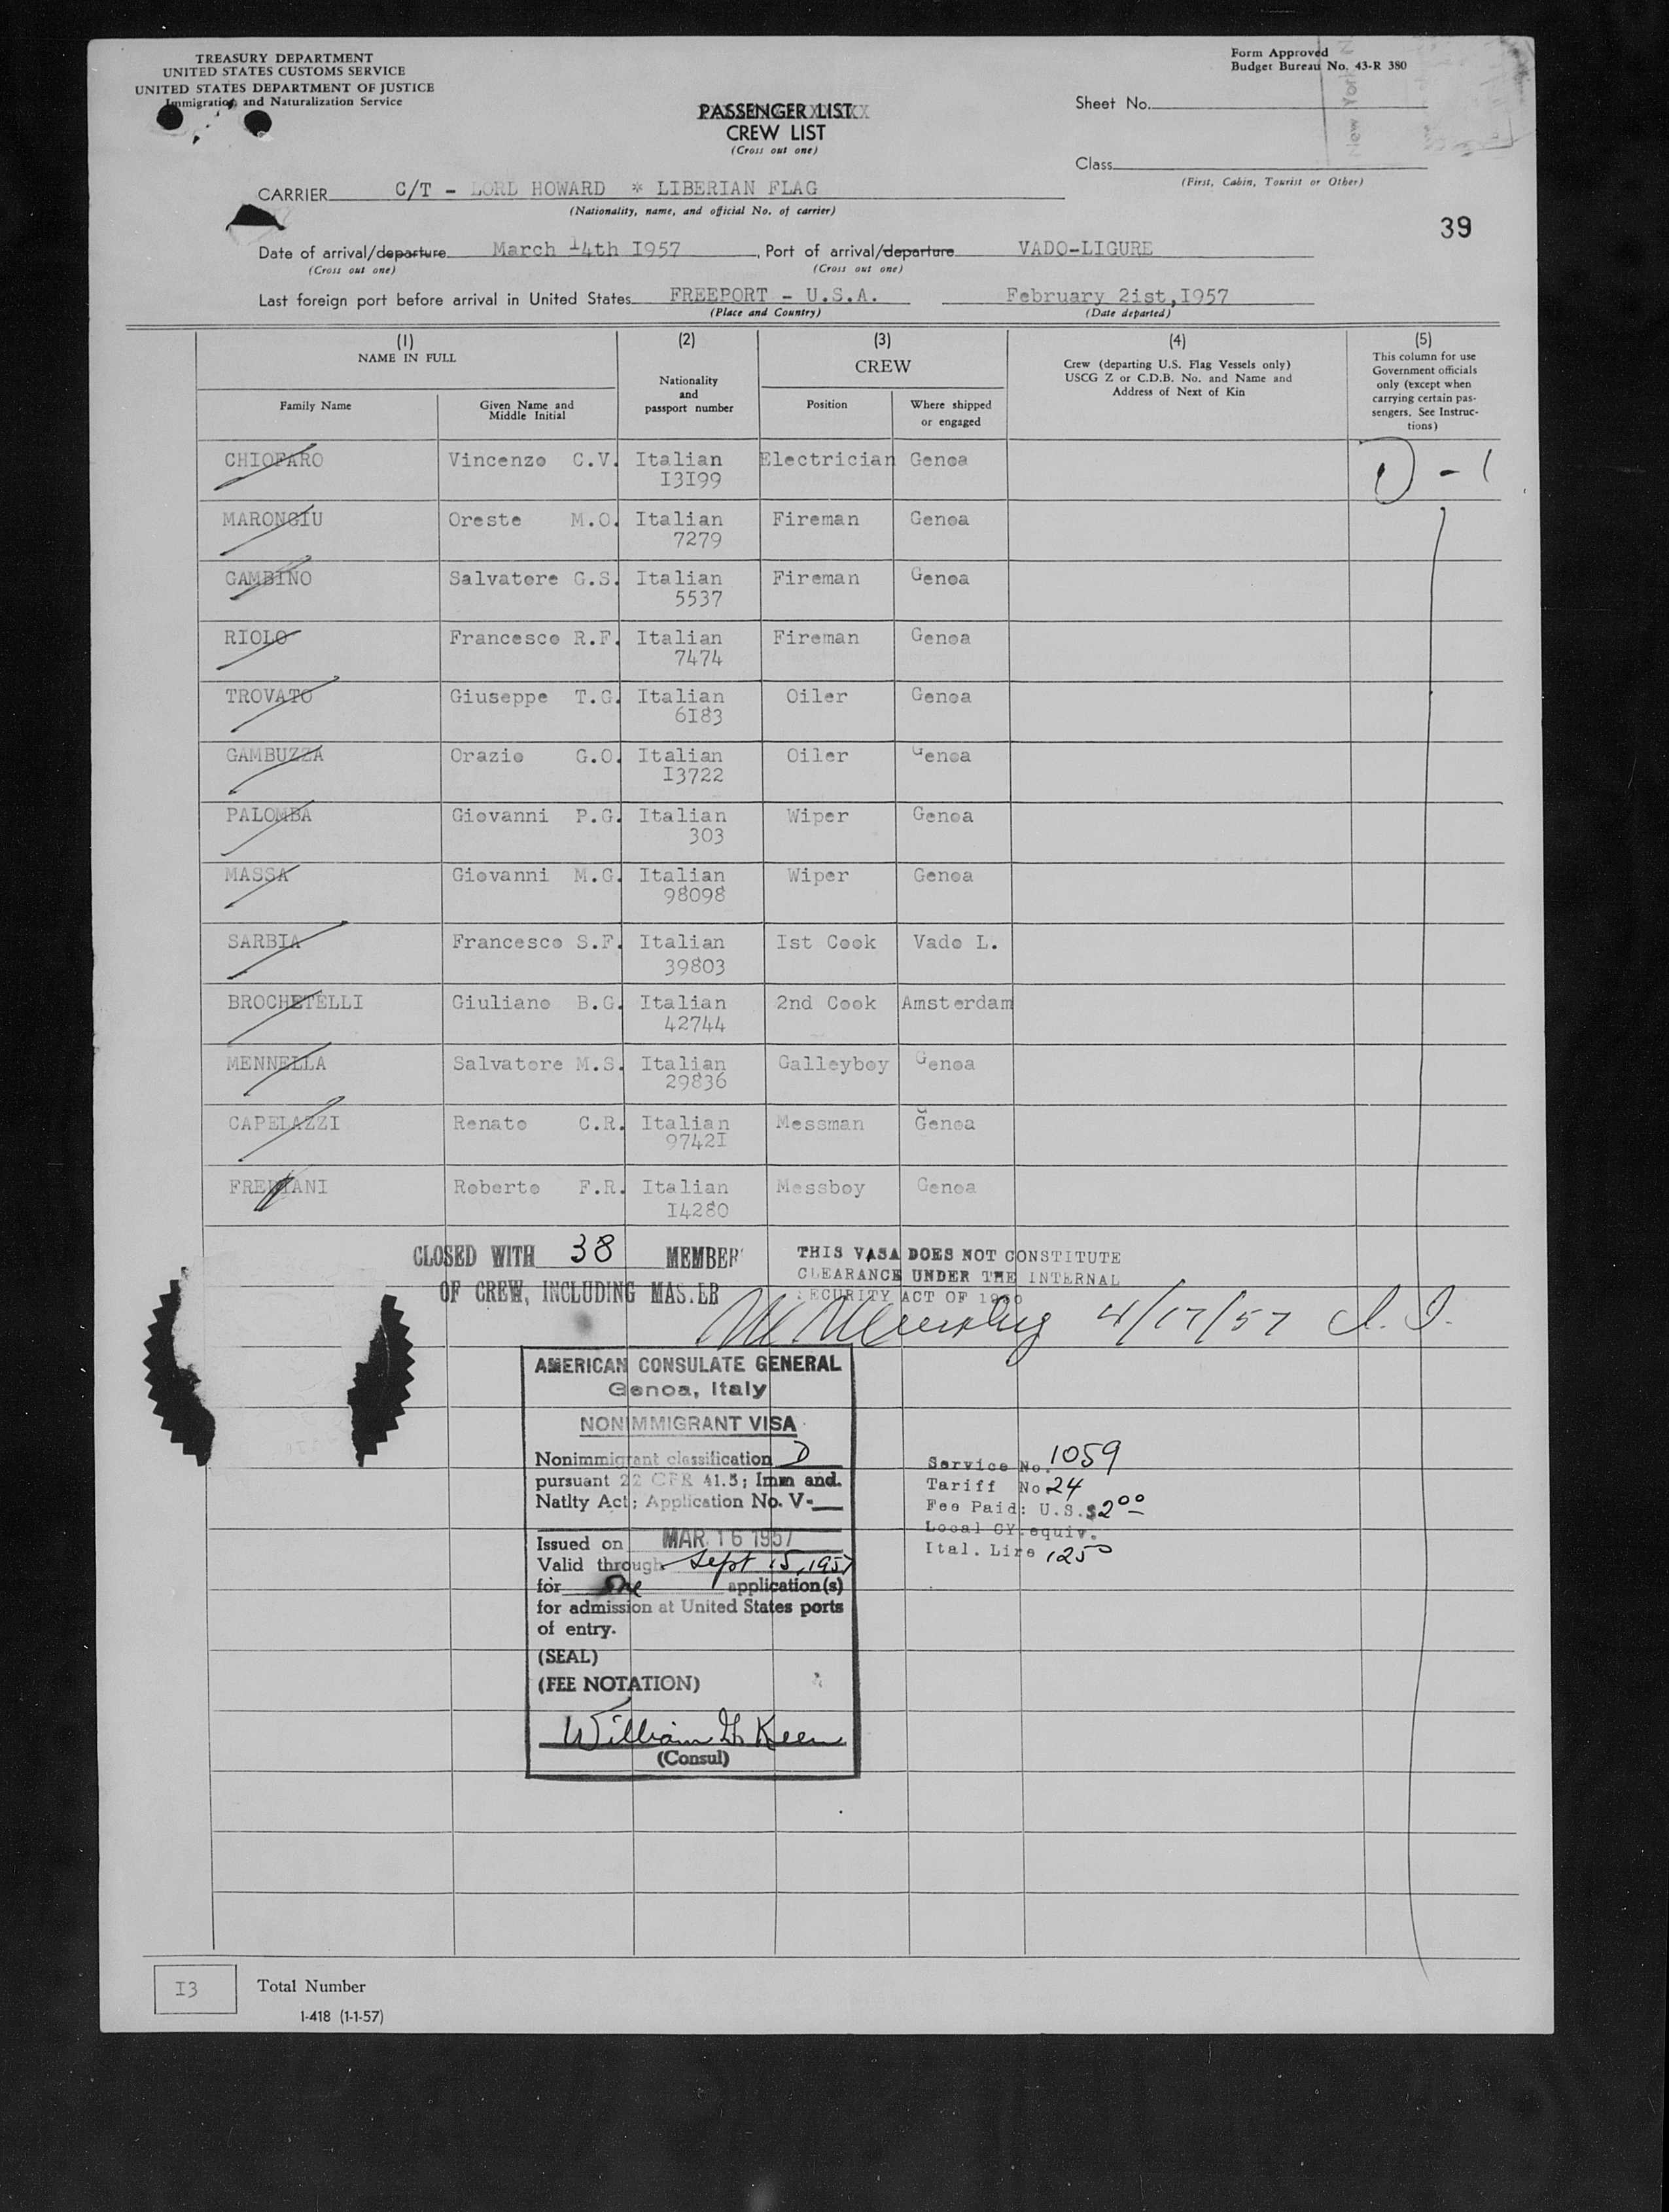 TREASURY DEPARTMENT
UNITED STATES CUSTOMS SERVICE
UNITED STATES DEPARTMENT OF JUSTICE
Immigration and Naturalization Service
Form Approved
Budget Bureau No. 43-R 380
PASSENGER LIST
CREW LIST
(Cross out one)
Sheet No.
New York
Class
(First, Cabin, Tourist or Other)
CARRIER C/T - LORD HOWARD * LIBERIAN FLAG
(Nationality, name, and official No. of carrier)
39
Date of arrival/departure March 14th I957, Port of arrival/departure VADO-LIGURE
(Cross out one) (Cross out one)
Last foreign port before arrival in United States FREEPORT - U.S.A. February 2ist,I957
(Place and Country) (Date departed)
(1) NAME IN FULL
Family Name
Given Name and Middle Initial
(2) Nationality and passport number
(3) CREW
Position
Where shipped or engaged
(4) Crew (departing U.S. Flag Vessels only) USCG Z or C.D.B. No. and Name and Address of Next of Kin
(5) This column for use Government officials only (except when carrying certain passengers. See Instructions)
CHIOFARO Vincenzo C.V. Italian Electrician Genoa D - 1
I3I99
MARONGIU Oreste M.O. Italian Fireman Genoa
7279
GAMBINO Salvatore G.S. Italian Fireman Genoa
5537
RIOLO Francesco R.F. Italian Fireman Genoa
7474
TROVATO Giuseppe T.G. Italian Oiler Genoa
6I83
GAMBUZZA Orazio G.O. Italian Oiler Genoa
I3722
PALOMBA Giovanni P.G. Italian Wiper Genoa
303
MASSA Giovanni M.G. Italian Wiper Genoa
98098
SARBIA Francesco S.F. Italian Ist Cook Vado L.
39803
BROCHETELLI Giuliano B.G. Italian 2nd Cook Amsterdam
42744
MENNELLA Salvatore M.S. Italian Galleyboy Genoa
29836
CAPELAZZI Renato C.R. Italian Messman Genoa
9742I
FREDIANI Roberto F.R. Italian Messboy Genoa
I4280
CLOSED WITH 38 MEMBER
OF CREW, INCLUDING MASTER
THIS VASA DOES NOT CONSTITUTE
CLEARANCE UNDER THE INTERNAL
SECURITY ACT OF 1950
4/17/57 I. I.
AMERICAN CONSULATE GENERAL
Genoa, Italy
NONIMMIGRANT VISA
Nonimmigrant classification D
pursuant 22 CFR 41.5; Imm and.
Natlty Act; Application No. V-
Issued on MAR 16 1957
Valid through Sept 15, 1957
for One application(s)
for admission at United States ports
of entry.
(SEAL)
(FEE NOTATION)
William G Keen
(Consul)
Service No. 1059
Tariff No 24
Fee Paid: U.S. $2 00
Local CY. equiv.
Ital. Lire 1250
I3 Total Number
I-418 (1-1-57)